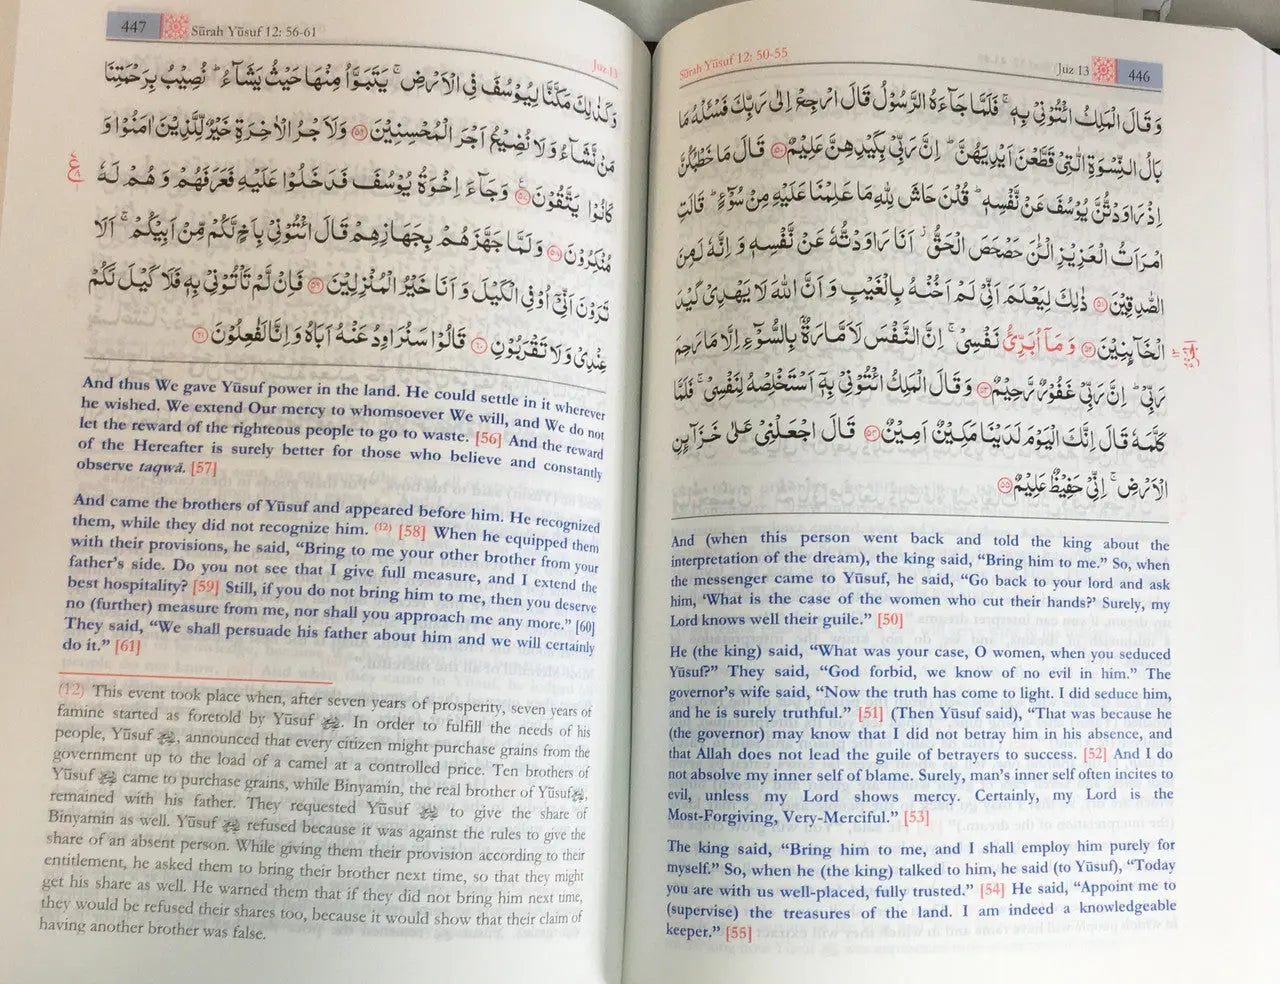 Sūrah Yūsuf 12: 50-55
Juz 13
446
وَقَالَ الْمَلِكُ ائْتُوْنِيْ بِهٖ ۚ فَلَمَّا جَآءَهُ الرَّسُوْلُ قَالَ ارْجِعْ اِلٰى رَبِّكَ فَسْئَلْهُ مَا
بَالُ النِّسْوَةِ الّٰتِيْ قَطَّعْنَ اَيْدِيَهُنَّ ؕ اِنَّ رَبِّيْ بِكَيْدِهِنَّ عَلِيْمٌ ﴿۵۰﴾ قَالَ مَا خَطْبُكُنَّ
اِذْ رَاوَدْتُّنَّ يُوْسُفَ عَنْ نَّفْسِهٖ ؕ قُلْنَ حَاشَ لِلّٰهِ مَا عَلِمْنَا عَلَيْهِ مِنْ سُوْٓءٍ ؕ قَالَتِ
امْرَاَتُ الْعَزِيْزِ الْـٰٔنَ حَصْحَصَ الْحَقُّ ۫ اَنَا رَاوَدْتُّهٗ عَنْ نَّفْسِهٖ وَ اِنَّهٗ لَمِنَ
الصّٰدِقِيْنَ ﴿۵۱﴾ ذٰلِكَ لِيَعْلَمَ اَنِّيْ لَمْ اَخُنْهُ بِالْغَيْبِ وَ اَنَّ اللّٰهَ لَا يَهْدِيْ كَيْدَ
الْخَآئِنِيْنَ ﴿۵۲﴾ وَ مَاۤ اُبَرِّئُ نَفْسِيْ ۚ اِنَّ النَّفْسَ لَاَمَّارَةٌۢ بِالسُّوْٓءِ اِلَّا مَا رَحِمَ
رَبِّيْ ؕ اِنَّ رَبِّيْ غَفُوْرٌ رَّحِيْمٌ ﴿۵۳﴾ وَقَالَ الْمَلِكُ ائْتُوْنِيْ بِهٖۤ اَسْتَخْلِصْهُ لِنَفْسِيْ ۚ فَلَمَّا
كَلَّمَهٗ قَالَ اِنَّكَ الْيَوْمَ لَدَيْنَا مَكِيْنٌ اَمِيْنٌ ﴿۵۴﴾ قَالَ اجْعَلْنِيْ عَلٰى خَزَآئِنِ
الْاَرْضِ ۚ اِنِّيْ حَفِيْظٌ عَلِيْمٌ ﴿۵۵﴾
And (when this person went back and told the king about the
interpretation of the dream), the king said, “Bring him to me.” So, when
the messenger came to Yūsuf, he said, “Go back to your lord and ask
him, ‘What is the case of the women who cut their hands?’ Surely, my
Lord knows well their guile.” [50]
He (the king) said, “What was your case, O women, when you seduced
Yūsuf?” They said, “God forbid, we know of no evil in him.” The
governor’s wife said, “Now the truth has come to light. I did seduce him,
and he is surely truthful.” [51] (Then Yūsuf said), “That was because he
(the governor) may know that I did not betray him in his absence, and
that Allah does not lead the guile of betrayers to success. [52] And I do
not absolve my inner self of blame. Surely, man’s inner self often incites to
evil, unless my Lord shows mercy. Certainly, my Lord is the
Most-Forgiving, Very-Merciful.” [53]
The king said, “Bring him to me, and I shall employ him purely for
myself.” So, when he (the king) talked to him, he said (to Yūsuf), “Today
you are with us well-placed, fully trusted.” [54] He said, “Appoint me to
(supervise) the treasures of the land. I am indeed a knowledgeable
keeper.” [55]
447
Sūrah Yūsuf 12: 56-61
Juz 13
وَكَذٰلِكَ مَكَّنَّا لِيُوْسُفَ فِي الْاَرْضِ ۚ يَتَبَوَّاُ مِنْهَا حَيْثُ يَشَآءُ ؕ نُصِيْبُ بِرَحْمَتِنَا
مَنْ نَّشَآءُ وَلَا نُضِيْعُ اَجْرَ الْمُحْسِنِيْنَ ﴿۵۶﴾ وَلَاَجْرُ الْاٰخِرَةِ خَيْرٌ لِّلَّذِيْنَ اٰمَنُوْا وَ
كَانُوْا يَتَّقُوْنَ ﴿۵۷﴾ وَجَآءَ اِخْوَةُ يُوْسُفَ فَدَخَلُوْا عَلَيْهِ فَعَرَفَهُمْ وَ هُمْ لَهٗ
مُنْكِرُوْنَ ﴿۵۸﴾ وَلَمَّا جَهَّزَهُمْ بِجَهَازِهِمْ قَالَ ائْتُوْنِيْ بِاَخٍ لَّكُمْ مِّنْ اَبِيْكُمْ ۚ اَلَا
تَرَوْنَ اَنِّيْۤ اُوْفِي الْكَيْلَ وَ اَنَا خَيْرُ الْمُنْزِلِيْنَ ﴿۵۹﴾ فَاِنْ لَّمْ تَاْتُوْنِيْ بِهٖ فَلَا كَيْلَ لَكُمْ
عِنْدِيْ وَلَا تَقْرَبُوْنِ ﴿۶۰﴾ قَالُوْا سَنُرَاوِدُ عَنْهُ اَبَاهُ وَ اِنَّا لَفٰعِلُوْنَ ﴿۶۱﴾
And thus We gave Yūsuf power in the land. He could settle in it wherever
he wished. We extend Our mercy to whomsoever We will, and We do not
let the reward of the righteous people to go to waste. [56] And the reward
of the Hereafter is surely better for those who believe and constantly
observe taqwā. [57]
And came the brothers of Yūsuf and appeared before him. He recognized
them, while they did not recognize him. (12) [58] When he equipped them
with their provisions, he said, “Bring to me your other brother from your
father’s side. Do you not see that I give full measure, and I extend the
best hospitality? [59] Still, if you do not bring him to me, then you deserve
no (further) measure from me, nor shall you approach me any more.” [60]
They said, “We shall persuade his father about him and we will certainly
do it.” [61]
(12) This event took place when, after seven years of prosperity, seven years of
famine started as foretold by Yūsuf. In order to fulfill the needs of his
people, Yūsuf, announced that every citizen might purchase grains from the
government up to the load of a camel at a controlled price. Ten brothers of
Yūsuf came to purchase grains, while Binyamīn, the real brother of Yūsuf,
remained with his father. They requested Yūsuf to give the share of
Binyamin as well. Yūsuf refused because it was against the rules to give the
share of an absent person. While giving them their provision according to their
entitlement, he asked them to bring their brother next time, so that they might
get his share as well. He warned them that if they did not bring him next time,
they would be refused their shares too, because it would show that their claim of
having another brother was false.